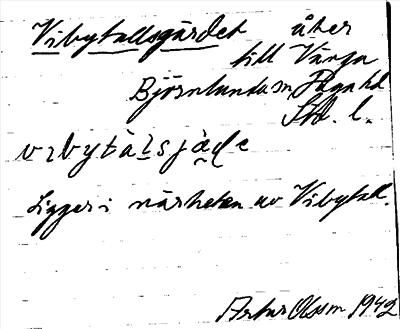 Vibytallsgärdet åker
till Vänga
Björnlunda sn Daga hd
Söd. l.
vibytàlsjäḍe
Ligger i närheten av Vibytall.
Artur Olsson 1942